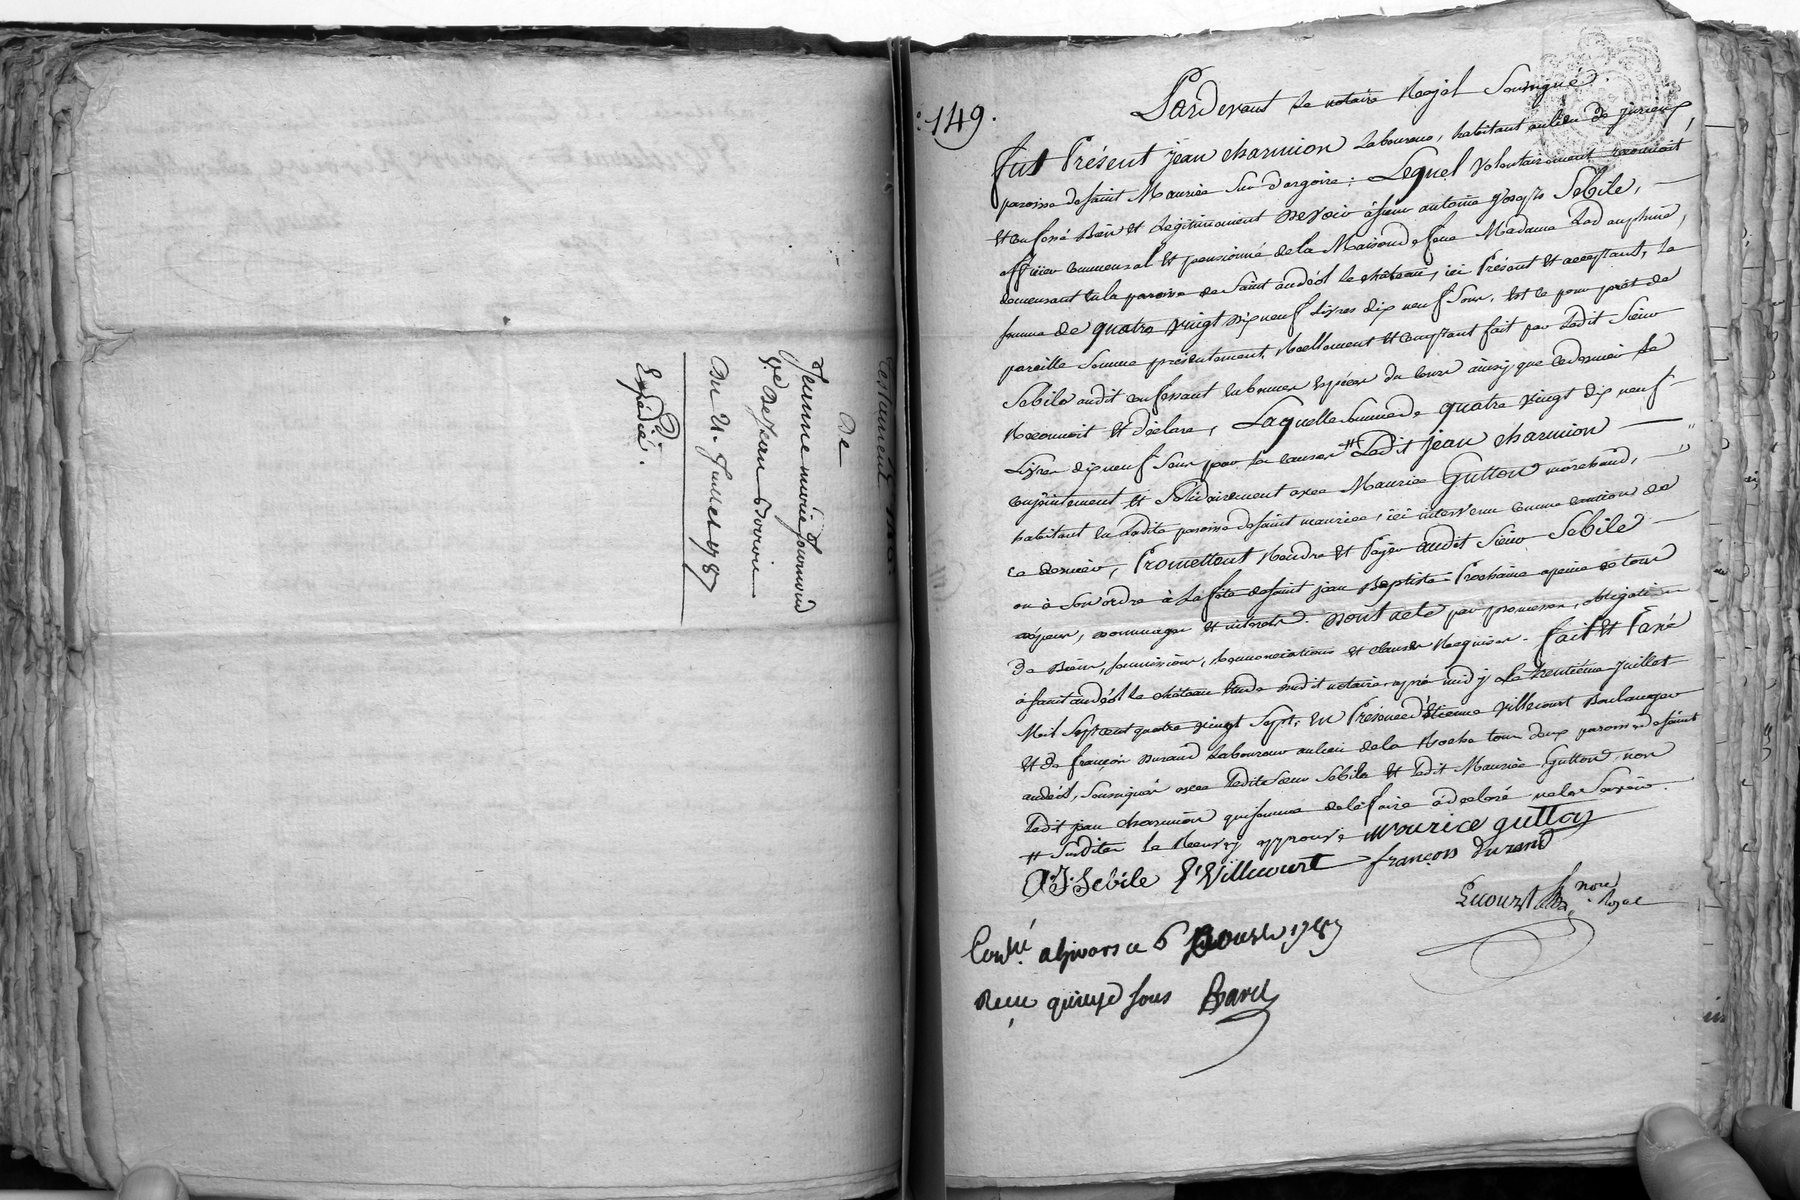 testament
de
Jeanne marie fournand
Ve. De Jean
Du 21. Juillet 1787
Expédié.
149.
Pardevant le notaire Royal Soussigné.
fut Présent jean charmion Laboureur, habitant au lieu de
paroisse de saint Maurice Sur d'argoire; Lequel volontairement reconnoit
et confessé Bien et Legitimement Devoir à sieur antoine joseph Sebile,
officier commensal et pensionné de la Maison de feue Madame La dauphine,
demeurant en la paroisse de Saint andéol le château, ici Présent et acceptant, la
somme de quatre vingt dix neuf Livres dix neuf Sous, est ce pour prêt de
pareille Somme présentement, Réellement et comptant fait par ledit Sieur
Sebile audit confessant en bonnes espèces du cours ainsy que ce dernier le
Reconnoit et déclare, Laquelle Somme de quatre vingt dix neuf
Livres dix neuf Sous pour les causes # Ledit jean charmion
conjointement et Solidairement avec Maurice Gutton marchand,
habitant en ladite paroisse de saint maurice, ici intervenu comme caution de
ce dernier, Promettent Rendre et Payer audit Sieur Sebile
ou à Son ordre à La fête de saint jean Baptiste Prochaine apeine de tous
dépens, dommages et interets. Dont acte par promesses, obligation
de Biens, soumissions, Renonciations et clauses Requises. fait et Passé
à saint andéol le château Etude dudit notaire après midy le trentième juillet
Mil Sept cent quatre vingt Sept, en Présence d'étienne villecourt Boulanger
et de françois Durand Laboureur au lieu de la Roche tous deux paroisse de saint
andéol, Soussignés avec ledit Sieur Sebile et ledit Maurice Gutton, non
ledit jean charmion qui somme de le faire à declaré ne le Savoir.
# Susdites le Renvoy approuvé maurice gutton
A. J. Sebile E Villecourt françois durand
nore Royal
Conlé. a givors ce 6 aoust 1787
Reçu quinze sous